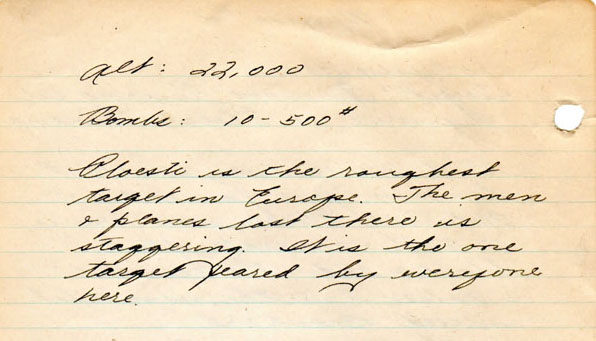 Alt: 22,000
Bombs: 10-500#
Ploesti is the roughest
target in Europe. The men
& planes lost there is
staggering. It is the one
target feared by everyone
here.